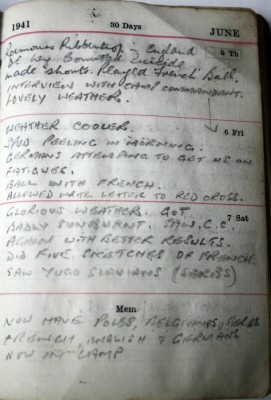 1941 30 Days JUNE
Rumours Ribbentrop in England
5 Th
committed Suicide
made shorts. Played French Ball.
INTERVIEW WITH CAMP COMMANDANT.
LOVELY WEATHER.
6 Fri
WEATHER COOLER.
SPUD PEELING IN MORNING.
GERMANS ATTEMPTING TO GET US ON
FATIGUES.
BALL WITH FRENCH.
ALLOWED WRITE LETTER TO RED CROSS.
GLORIOUS WEATHER. GOT
7 Sat
BADLY SUNBURNT. SAW C.C.
AGAIN WITH BETTER RESULTS.
DID FIVE SKETCHES OF FRENCH.
SAW YUGO SLAVIANS (SERBS)
Mem
NOW HAVE POLES, BELGIUMS, SERBS
FRENCH, ENGLISH & GERMANS
NOW IN CAMP